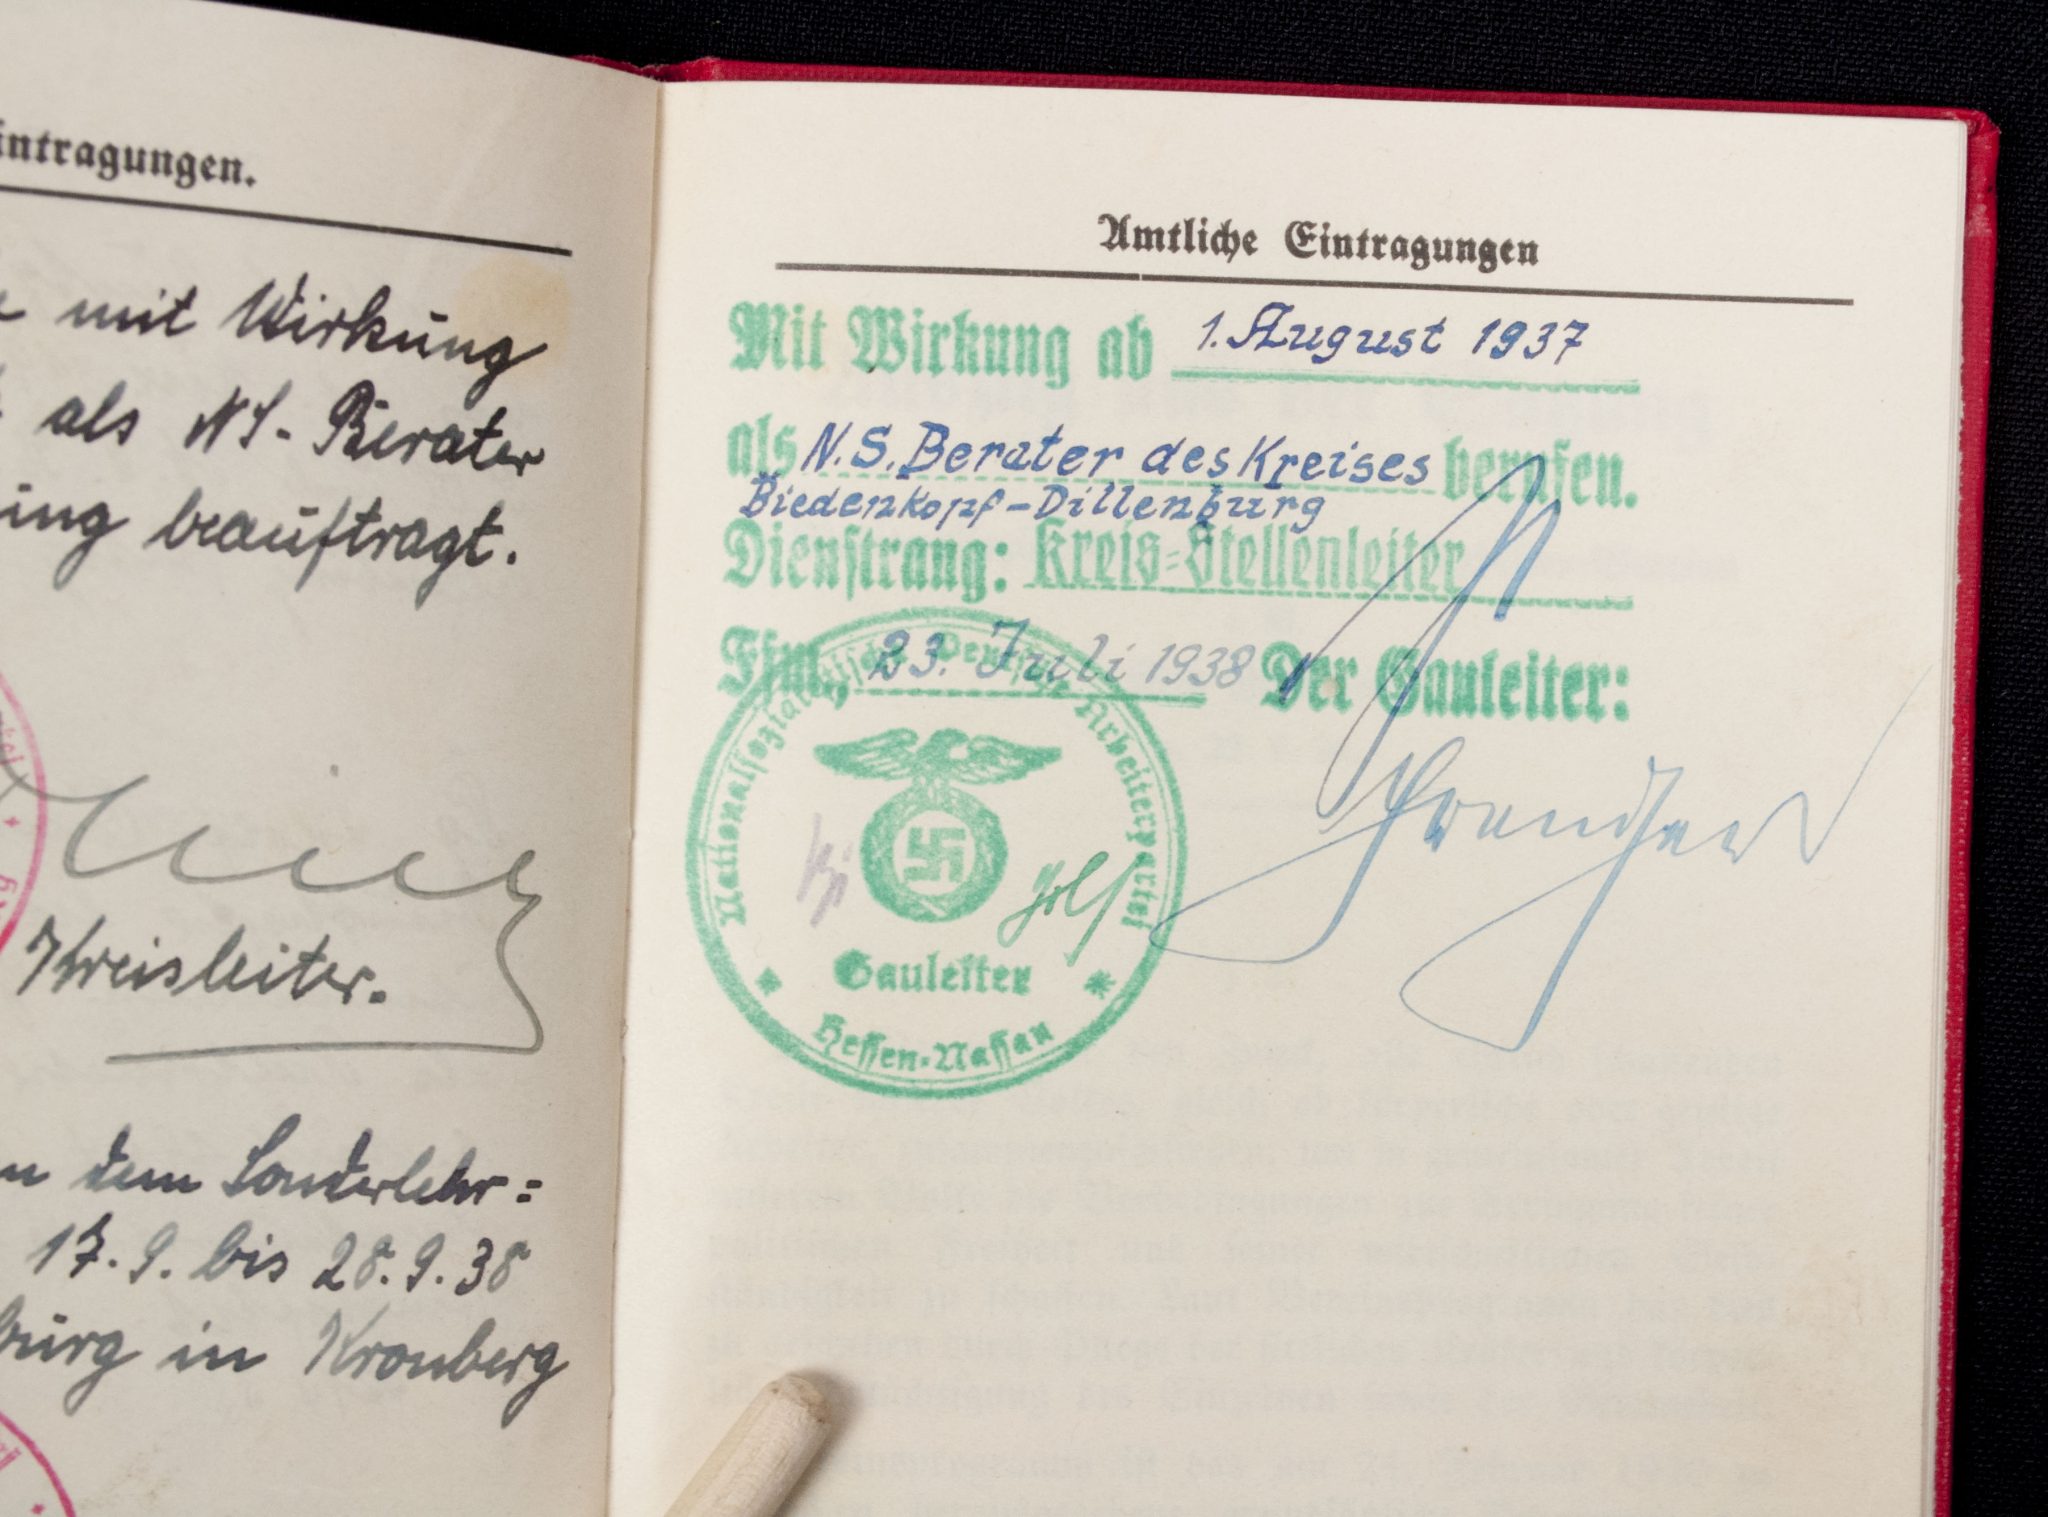 intragungen.
mit Wirkung
als NS-Berater
ung beauftragt.
Kreisleiter.
n dem Sonderlehr=
17.9. bis 28.9.38
burg in Kronberg
Amtliche Eintragungen
Mit Wirkung ab 1. August 1937
als N.S. Berater des Kreises berufen.
Biedenkopf-Dillenburg
Dienstrang: Kreis=Stellenleiter
Ffm., 23. Juli 1938 Der Gauleiter:
Nationalsozialistische Deutsche Arbeiterpartei
Gauleiter
Hessen-Nassau